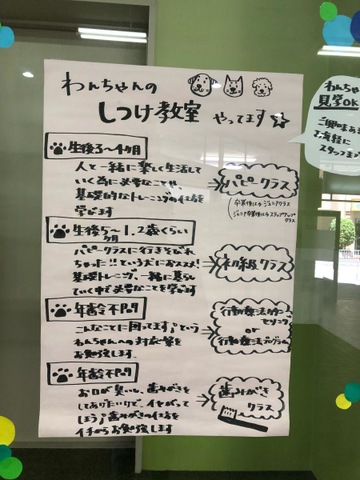 わんちゃんの
しつけ教室 やってます☆
わんちゃ
見学OK
ご興味あ
お気軽に
スタッフ
生後3〜4ヶ月
人と一緒に楽しく生活して
いく為に必要なことや、
基礎的なトレーニングの仕方を
学びます
パピークラス
生後5〜1、2歳くらい
ヶ月
パピークラスに行きそびれ
ちゃった!!という犬におススメ!
基礎トレーニング、一緒に暮らし
ていく中で必要なことを学びます
初級クラス
年齢不問
こんなことに困ってます;という
わんちゃんへの対応策を
お勉強します。
行動療法カウン
セリング
or
行動療法プログラム
年齢不問
お口が臭いし、歯みがきを
してあげたいけど、イヤがって
しまう;歯みがきの仕方を
イチからお勉強します
歯みがき
クラス